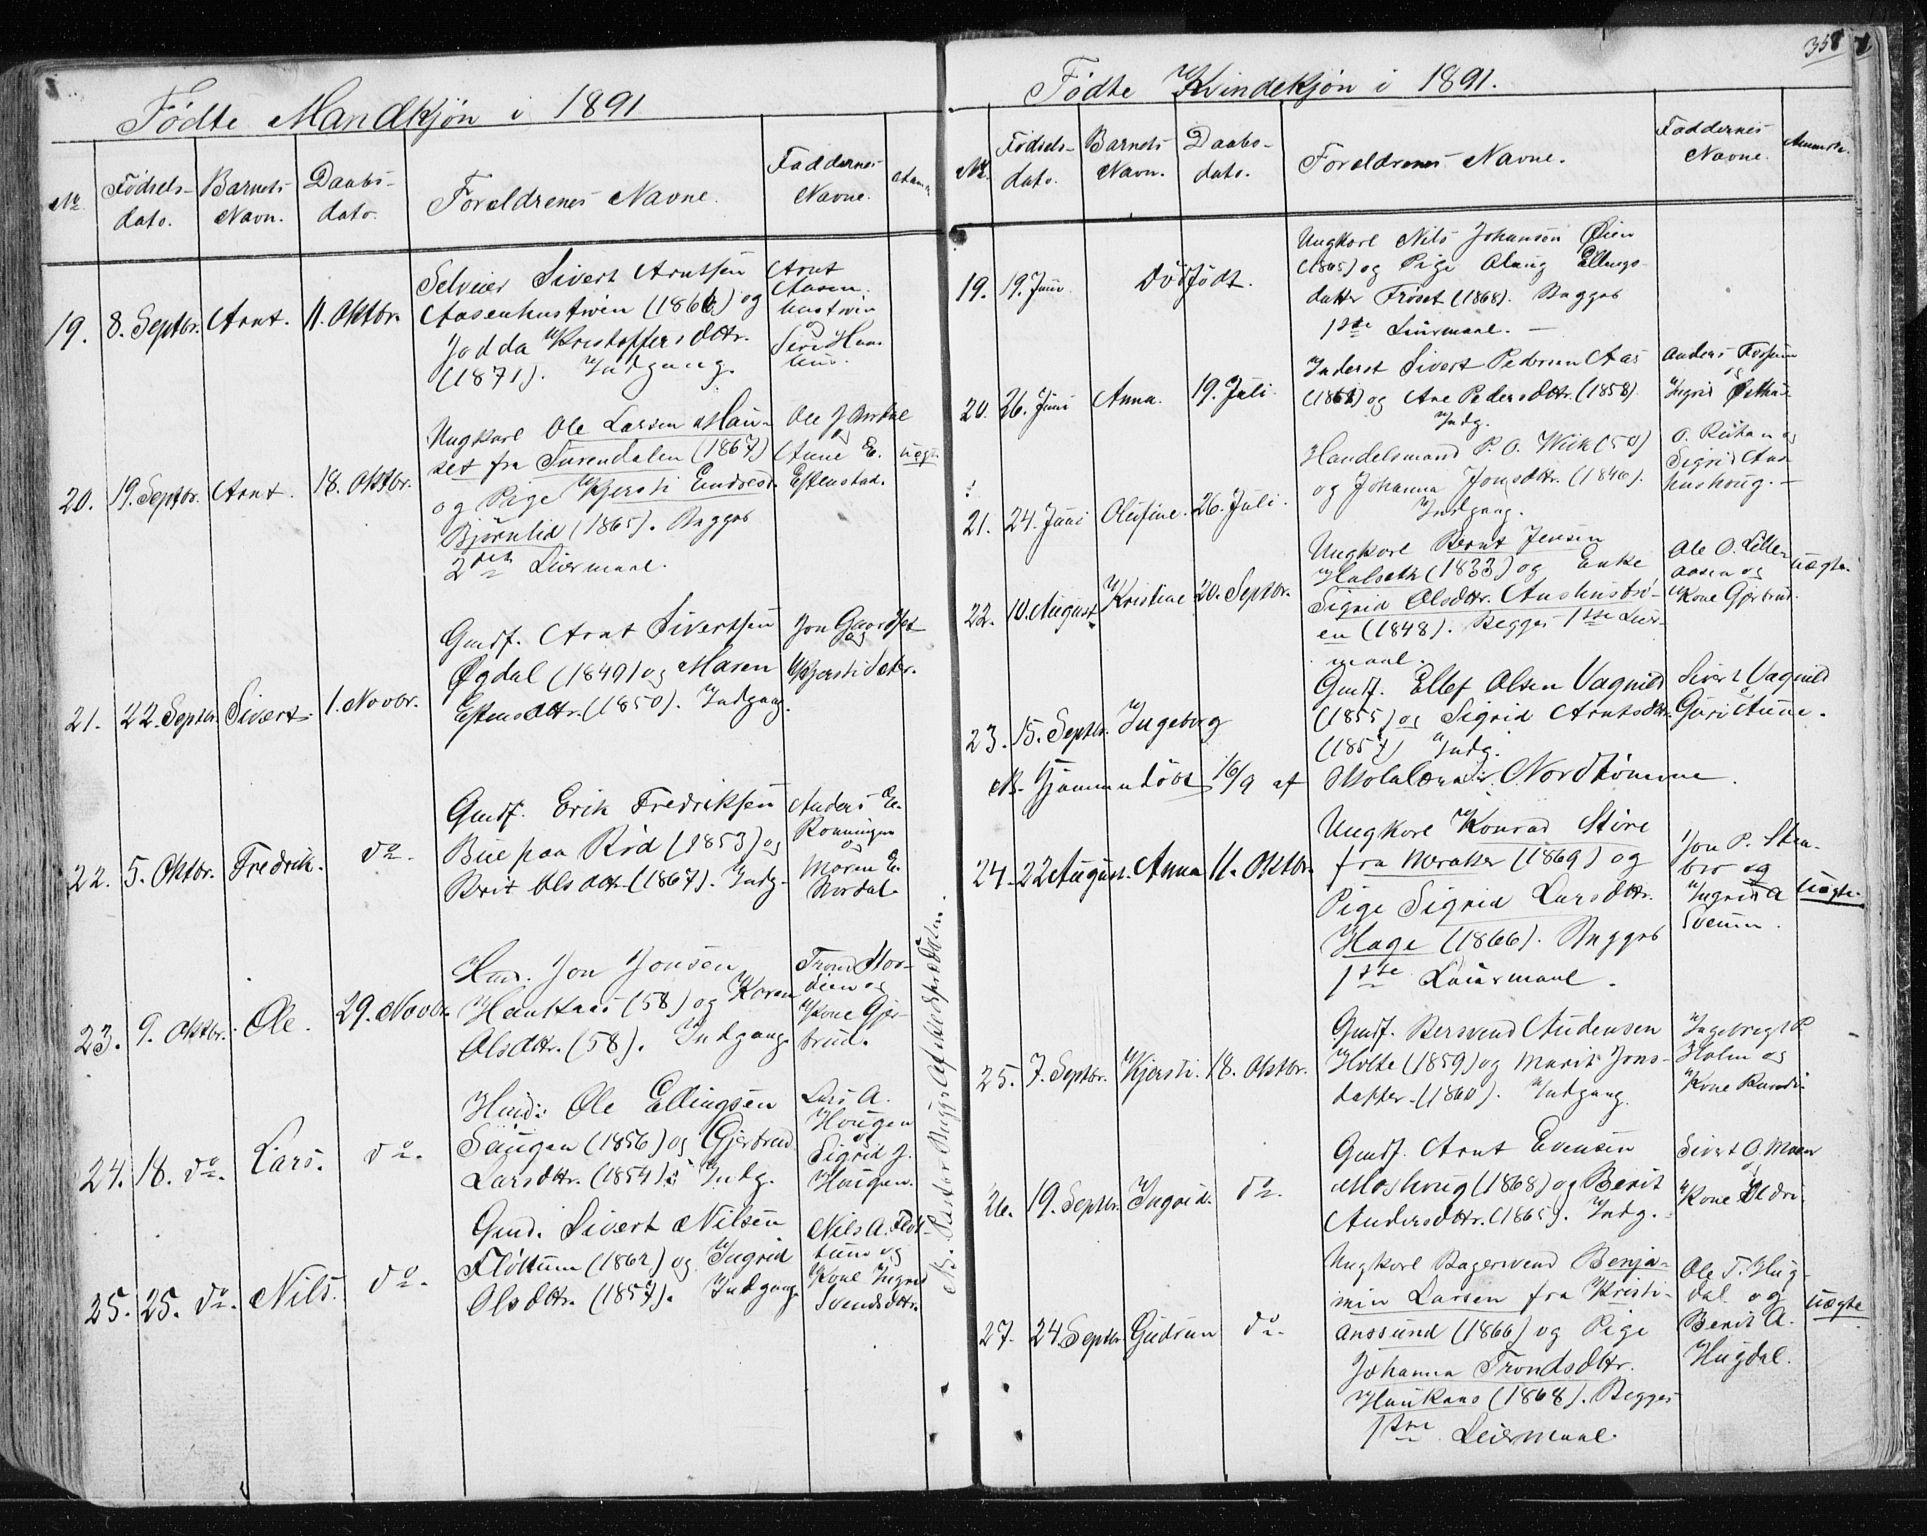 Fødte Mandkjøn i 1891
No.
Fødsels-
dato.
Barnets
Navn.
Daabs-
dato.
Foreldrenes Navne.
Faddernes
Navne.
19. 8. Septbr. Arnt. 11. Oktbr.
Selveier Sivert Arntsen
Aasenhustrøen (1866) og
Jodda Kristoffersdttr.
(1871). Indgang.
Arnt
Aasen-
hustrøen
og
20. 19. Septbr. Arnt. 18. Oktbr.
Ungkarl Ole Larsen Hau-
set fra Surendalen (1867)
og Pige Kjersti Endresd.
Bjørnlid (1865). Begges
2det Leiermaal.
Ole J.
og
Anne E.
Estenstad.
uægte
21. 22. Septbr. Sivert 1. Novbr.
Gmdf. Arnt Sivertsen
Øgdal (1849) og Maren
Estensdttr. (1850). Indgang.
Jon Gaardset
og
Kjersti
22. 5. Oktbr. Fredrik. do.
Gmdf. Erik Fredriksen
Bue paa Rød (1853) og
Brit Olsdttr. (1867). Indg.
Anders E.
Rønningen
og
Maren E.
Nordal.
23. 9. Oktbr. Ole. 29. Novbr.
Jon Jonsen
Hanstad (58) og Karen
Olsdttr. (58). Indgang.
Trond
og
Kone Gjer-
trud.
24. 18. do. Lars. do.
Husm. Ole Ellingsen
Haugen (1856) og Gjertrud
Larsdttr. (1854). Indg.
Lars A.
Hougen
og
Sigrid J.
Haugen.
25. 25. do. Nils. do.
Gmd. Sivert Nilsen
Fløttum (1862) og Ingrid
Olsdttr. (1857). Indgang.
Nils A. Fløt-
tum og
Kone Ingrid
Svendsdttr.
Fødte Kvindekjøn i 1891.
No.
Fødsels-
dato.
Barnets
Navn.
Daabs-
dato.
Foreldrenes Navne.
Faddernes
Navne.
19. 19. Juni Dødfødt.
Ungkarl Nils Johansen Øien
(1865) og Pige Olaug Ellings-
datter Frøset (1868). Begges
1ste Leiermaal. —
20. 26. Juni Anna. 19. Juli.
Inderst Sivert Pedersen Aas
og Ane Pedersdttr. (1858).
Indg.
Anders
og
Ingrid
21. 24. Juni Olufine. 26. Juli.
Handelsmand P. O. Wiik (50)
og Johanna Jonsdttr. (1848).
Indgang.
og
Sigrid
22. 10. August. Kristine 20. Septbr.
Ungkarl Bernt Jensen
Halseth (1833) og Enke
Sigrid Olsdttr. Aushustrø-
en (1848). Begges 1ste Leier-
maal.
Ole O. Litle-
aasen og
Kone Gjertrud.
uægte.
23. 15. Septbr. Ingeborg
Gmdf. Ellef Olsen Vagnild
(1855) og Sigrid Arntsdttr.
(1857) Indg.
Sivert Vagnild
Guri Aune.
NB. Hjemmedøbt 16/9 af Skolelærer Nordtømme.
24. 22 August. Anna 11. Oktbr.
Ungkarl Konrad Støre
fra Meraker (1869) og
Pige Sigrid Larsdttr.
Hage (1866). Begges
1ste Leiermaal.
Jon P. Sten-
bro og
Ingrid A
Svean.
Uægte.
25. 7. Septbr. Kjersti. 18. Oktbr.
Gmdf. Bersvend Audensen
Holte (1859) og Marit Jons-
datter. (1860). Indgang.
Ingebregt P.
Holm og
Kone
26. 19. Septbr. Ingrid. do.
Gmdf. Arnt Evensen
Moshoug (1868) og Berit
Andersdttr. (1865). Indg.
Sivert O. Moen
og
Kone Eldri
27. 24. Septbr. Gudrun do.
Ungkarl Bagersvend Benja-
min Larsen fra Kristi-
anssund (1866) og Pige
Johanna Trondsdttr.
Haukaas (1868). Begges
1ste Leiermaal.
Ole T. Hug-
dal og
Berit A.
Hugdal.
uægte